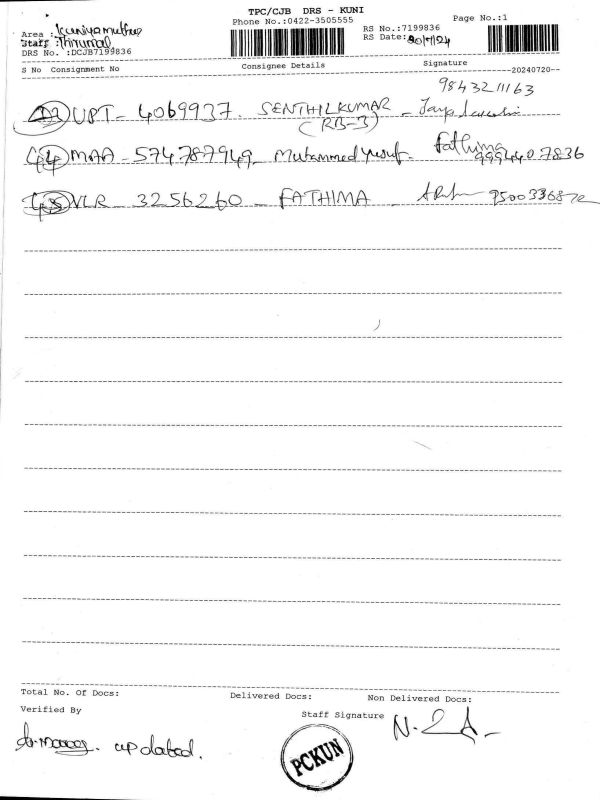 TPC/CJB DRS - KUNI
Phone No.:0422-3505555
RS No.:7199836
Page No.:1
Area : Kuniyamuthur
RS Date: 20/7/24
Staff : Thirumal
DRS No. :DCJB7199836
S No Consignment No Consignee Details Signature --20240720--
9843211163
UPT- 4069937. SENTHILKUMAR
(RB-3)
44 MAA - 574787949 - Muhammed yusuf - fathima
9994407836
45 VLR - 3256260 - FATHIMA - 9500336872
Total No. Of Docs: Delivered Docs: Non Delivered Docs:
Verified By Staff Signature
updated.
PCKUN